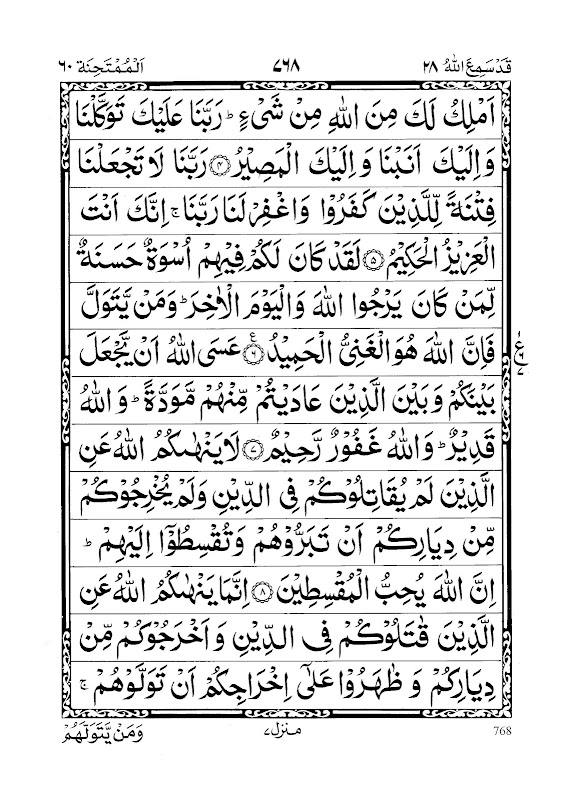 قَدۡ سَمِعَ اللّٰهُ ۲۸ ۷۶۸ اَلۡمُمۡتَحِنَة ۶۰
اَمۡلِكُ لَكَ مِنَ اللّٰهِ مِنۡ شَىۡءٍ ؕ رَبَّنَا عَلَيۡكَ تَوَكَّلۡنَا
وَاِلَيۡكَ اَنَبۡنَا وَاِلَيۡكَ الۡمَصِيۡرُ ۝۴ رَبَّنَا لَا تَجۡعَلۡنَا
فِتۡنَةً لِّلَّذِيۡنَ كَفَرُوۡا وَاغۡفِرۡ لَنَا رَبَّنَا ۚ اِنَّكَ اَنۡتَ
الۡعَزِيۡزُ الۡحَكِيۡمُ ۝۵ لَقَدۡ كَانَ لَكُمۡ فِيۡهِمۡ اُسۡوَةٌ حَسَنَةٌ
لِّمَنۡ كَانَ يَرۡجُوا اللّٰهَ وَالۡيَوۡمَ الۡاٰخِرَ ؕ وَمَنۡ يَّتَوَلَّ
فَاِنَّ اللّٰهَ هُوَ الۡغَنِىُّ الۡحَمِيۡدُ ۝۶ عَسَى اللّٰهُ اَنۡ يَّجۡعَلَ
بَيۡنَكُمۡ وَبَيۡنَ الَّذِيۡنَ عَادَيۡتُمۡ مِّنۡهُمۡ مَّوَدَّةً ؕ وَاللّٰهُ
قَدِيۡرٌ ؕ وَاللّٰهُ غَفُوۡرٌ رَّحِيۡمٌ ۝۷ لَا يَنۡهٰٮكُمُ اللّٰهُ عَنِ
الَّذِيۡنَ لَمۡ يُقَاتِلُوۡكُمۡ فِى الدِّيۡنِ وَلَمۡ يُخۡرِجُوۡكُمۡ
مِّنۡ دِيَارِكُمۡ اَنۡ تَبَرُّوۡهُمۡ وَتُقۡسِطُوۡۤا اِلَيۡهِمۡ ؕ
اِنَّ اللّٰهَ يُحِبُّ الۡمُقۡسِطِيۡنَ ۝۸ اِنَّمَا يَنۡهٰٮكُمُ اللّٰهُ عَنِ
الَّذِيۡنَ قٰتَلُوۡكُمۡ فِى الدِّيۡنِ وَاَخۡرَجُوۡكُمۡ مِّنۡ
دِيَارِكُمۡ وَظٰهَرُوۡا عَلٰٓى اِخۡرَاجِكُمۡ اَنۡ تَوَلَّوۡهُمۡ ۚ
768 منزل ۷ وَمَنۡ يَّتَوَلَّهُمۡ